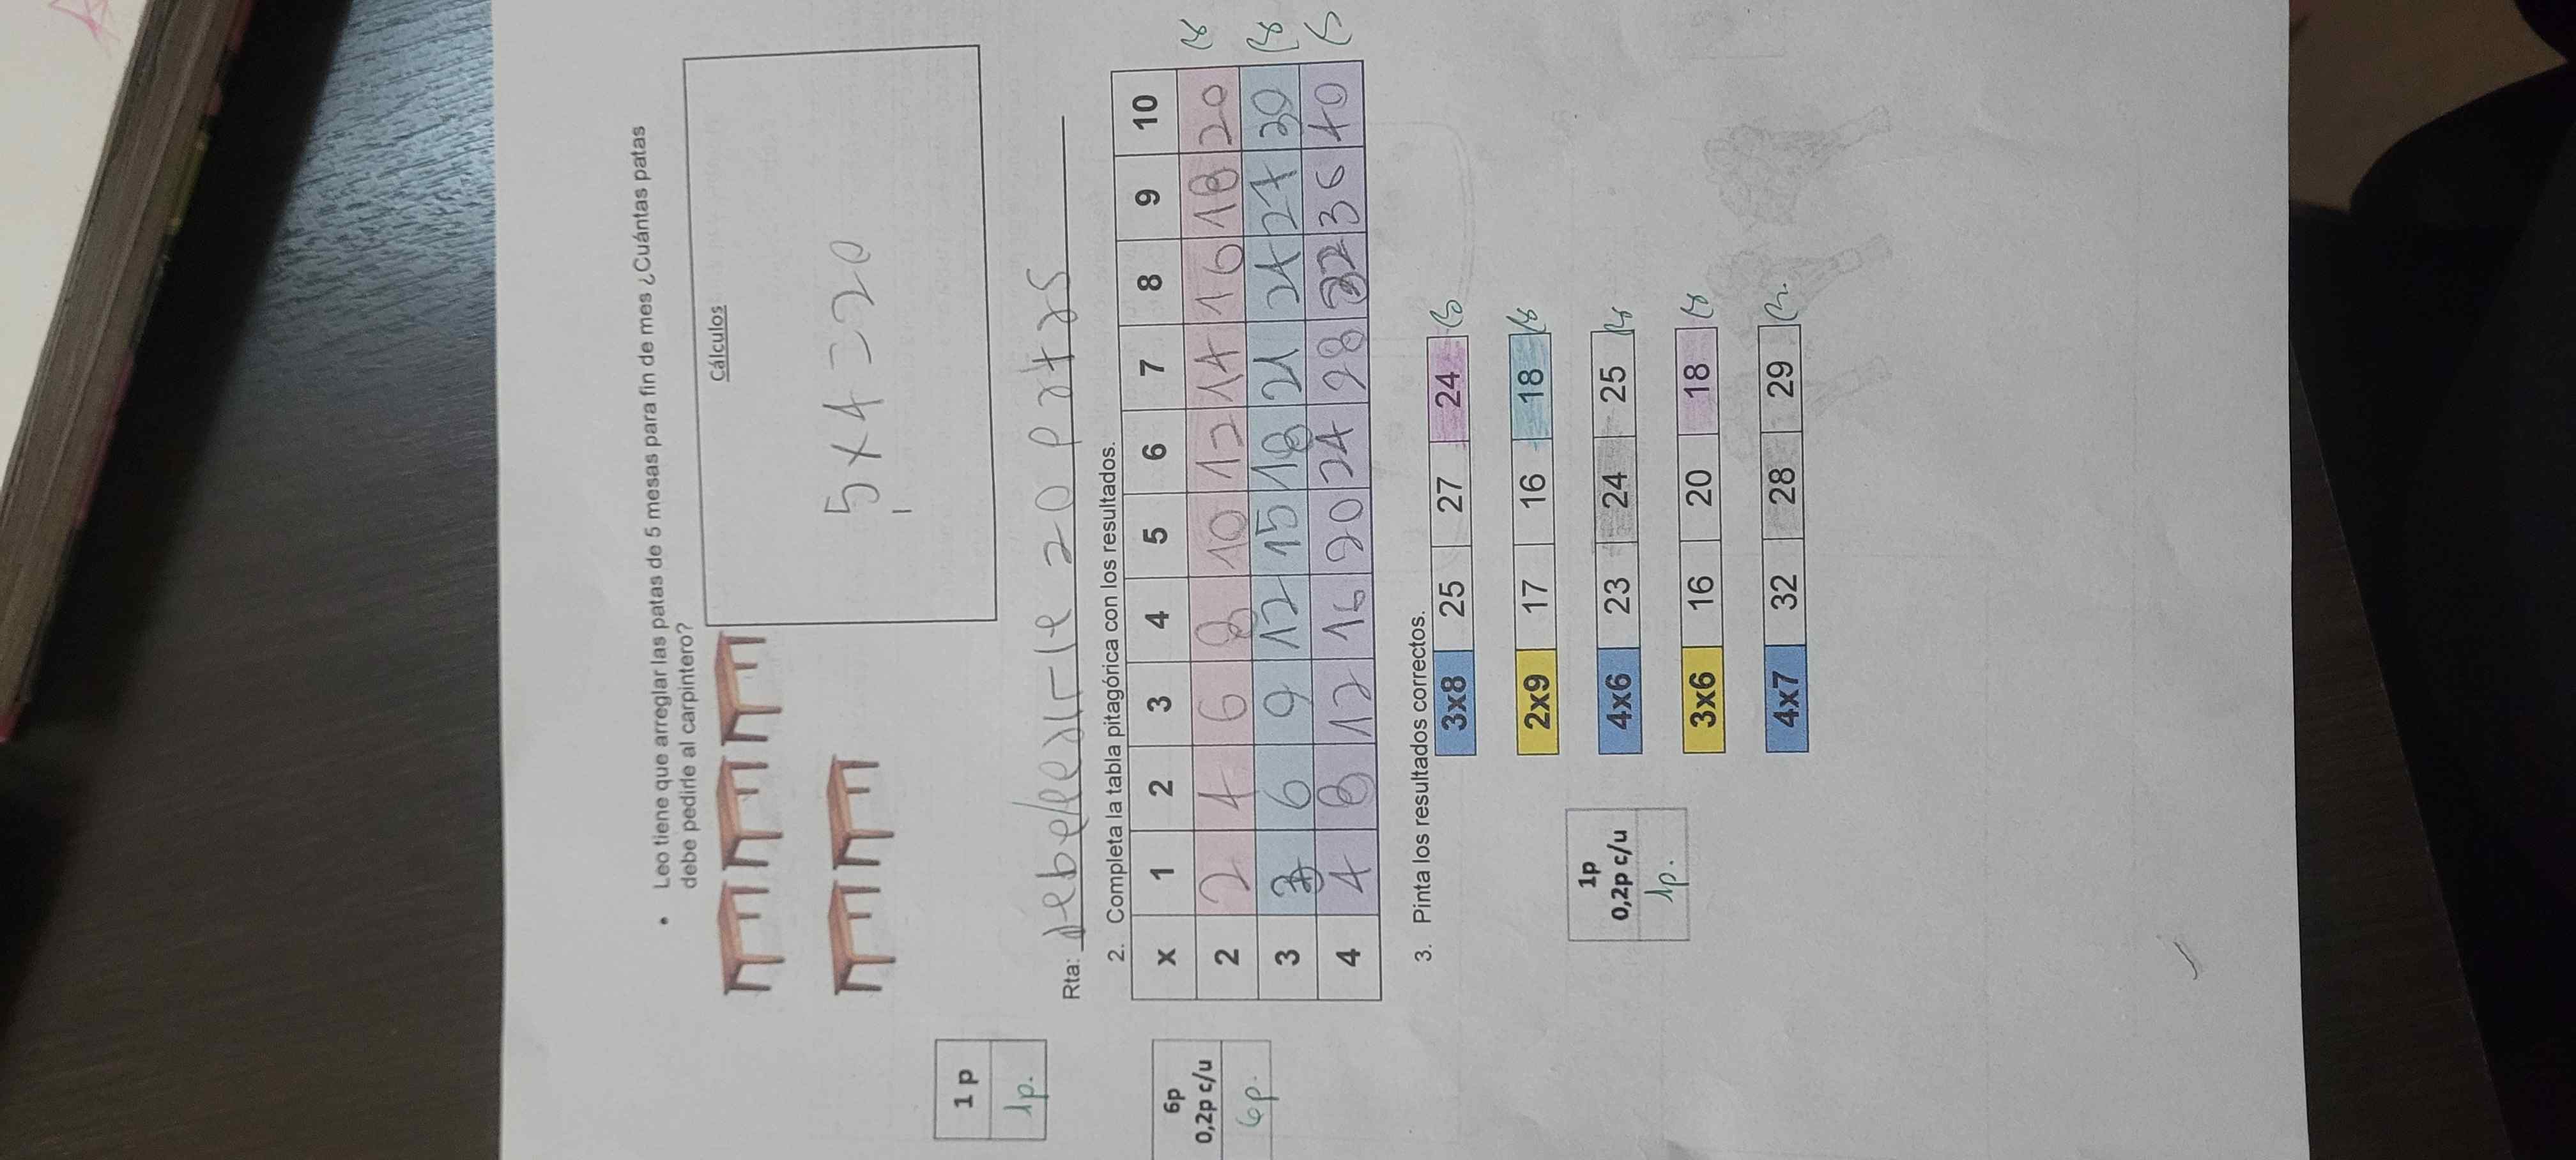 • Leo tiene que arreglar las patas de 5 mesas para fin de mes ¿Cuántas patas
debe pedirle al carpintero?
Cálculos
5 x 4 = 20
1 p
1p.
Rta: 20 patas
2. Completa la tabla pitagórica con los resultados.
6p
0,2p c/u
6p.
X 1 2 3 4 5 6 7 8 9 10
2 2 4 6 8 10 12 14 16 18 20
3 3 6 9 12 15 18 21 24 27 30
4 4 8 12 16 20 24 28 32 36 40
3. Pinta los resultados correctos.
3x8 25 27 24
2x9 17 16 18
4x6 23 24 25
3x6 16 20 18
4x7 32 28 29
1p
0,2p c/u
1p.